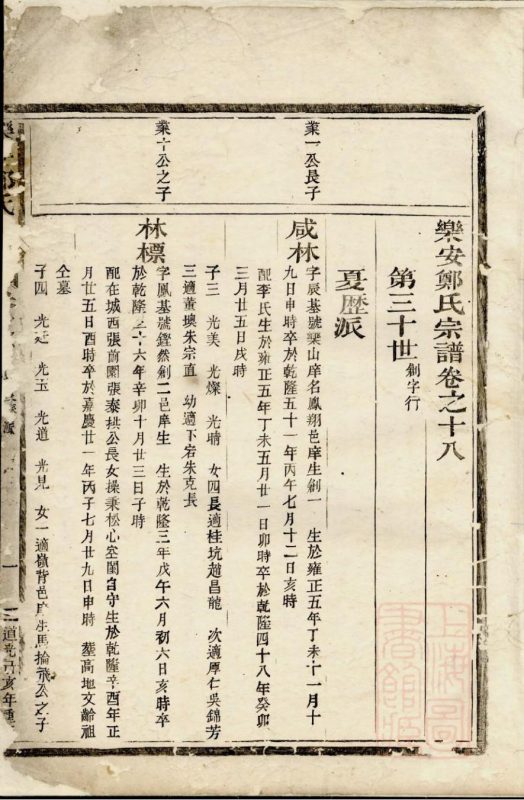 樂安鄭氏宗譜卷之十八
第三十世 剣字行
夏歷派
業一公長子
咸林 字辰基號棐山庠名鳳翔邑庠生剣一 生於雍正五年丁未十一月十
九日申時卒於乾隆五十一年丙午七月十二日亥時
配李氏生於雍正五年丁未五月廿一日卯時卒於乾隆四十八年癸卯
三月廿五日戌時
子三 光美 光燦 光晴 女四長適桂坑趙昌龍 次適厚仁吳錦芳
三適董墺朱宗直 幼適下宕朱克長
業十公之子
林標 字鳳基號鏗然剣二邑庠生 生於乾隆三年戊午六月初六日亥時卒
於乾隆三十六年辛卯十月廿三日子時
配在城西張前園張泰拱公長女操秉松心空閨自守生於乾隆辛酉年正
月廿五日酉時卒於嘉慶廿一年丙子七月廿九日申時 塟高地文齡祖
仝墓
子四 光廷 光玉 光道 光見 女一適嶺背邑庠生馬掄飛公之子
一
道光己亥年重
上海圖書館藏